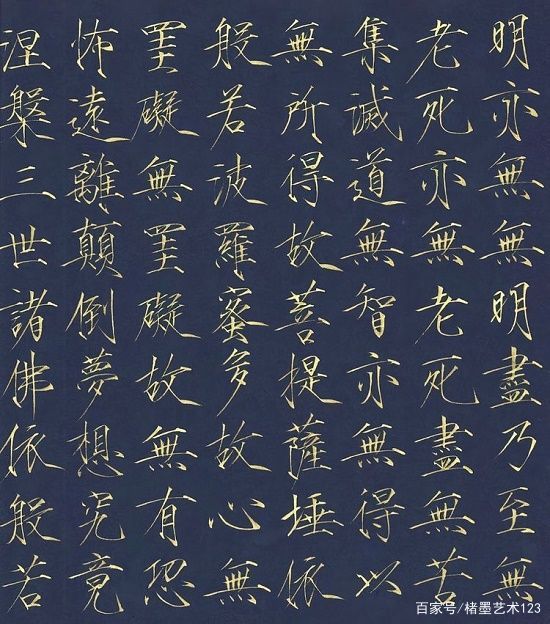 明亦無無明盡乃至無
老死亦無老死盡無苦
集滅道無智亦無得以
無所得故菩提薩埵依
般若波羅蜜多故心無
罣礙無罣礙故無有恐
怖遠離顛倒夢想究竟
涅槃三世諸佛依般若
百家号/楮墨艺术123